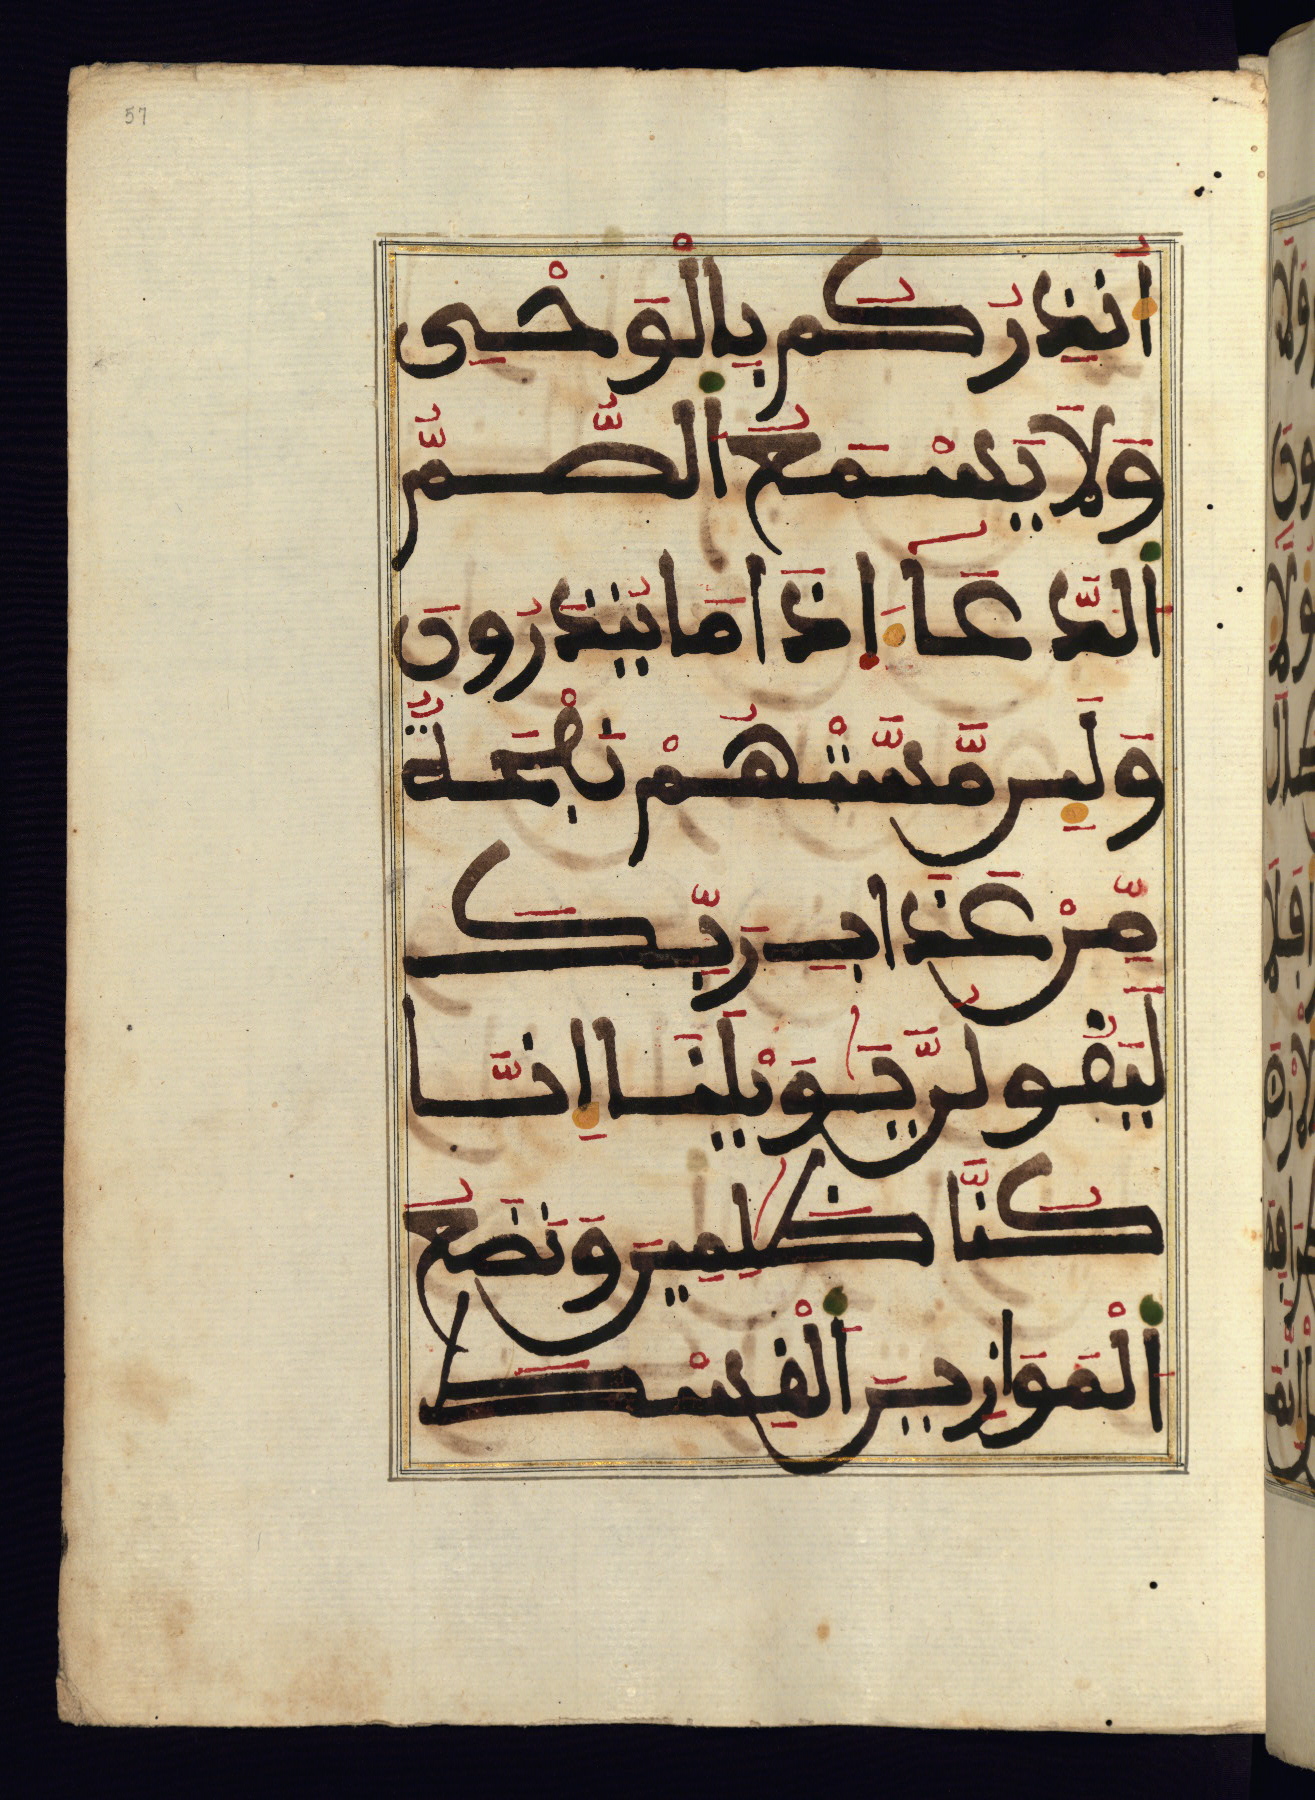 57
أُنذِرُكُم بِالْوَحْيِ
وَلَا يَسْمَعُ الصُّمُّ
الدُّعَآءَ إِذَا مَا يُنذَرُونَ
وَلَئِن مَّسَّتْهُمْ نَفْحَةٌ
مِّنْ عَذَابِ رَبِّكَ
لَيَقُولُنَّ يَٰوَيْلَنَا إِنَّا
كُنَّا ظَٰلِمِينَ وَنَضَعُ
الْمَوَازِينَ الْقِسْطَ